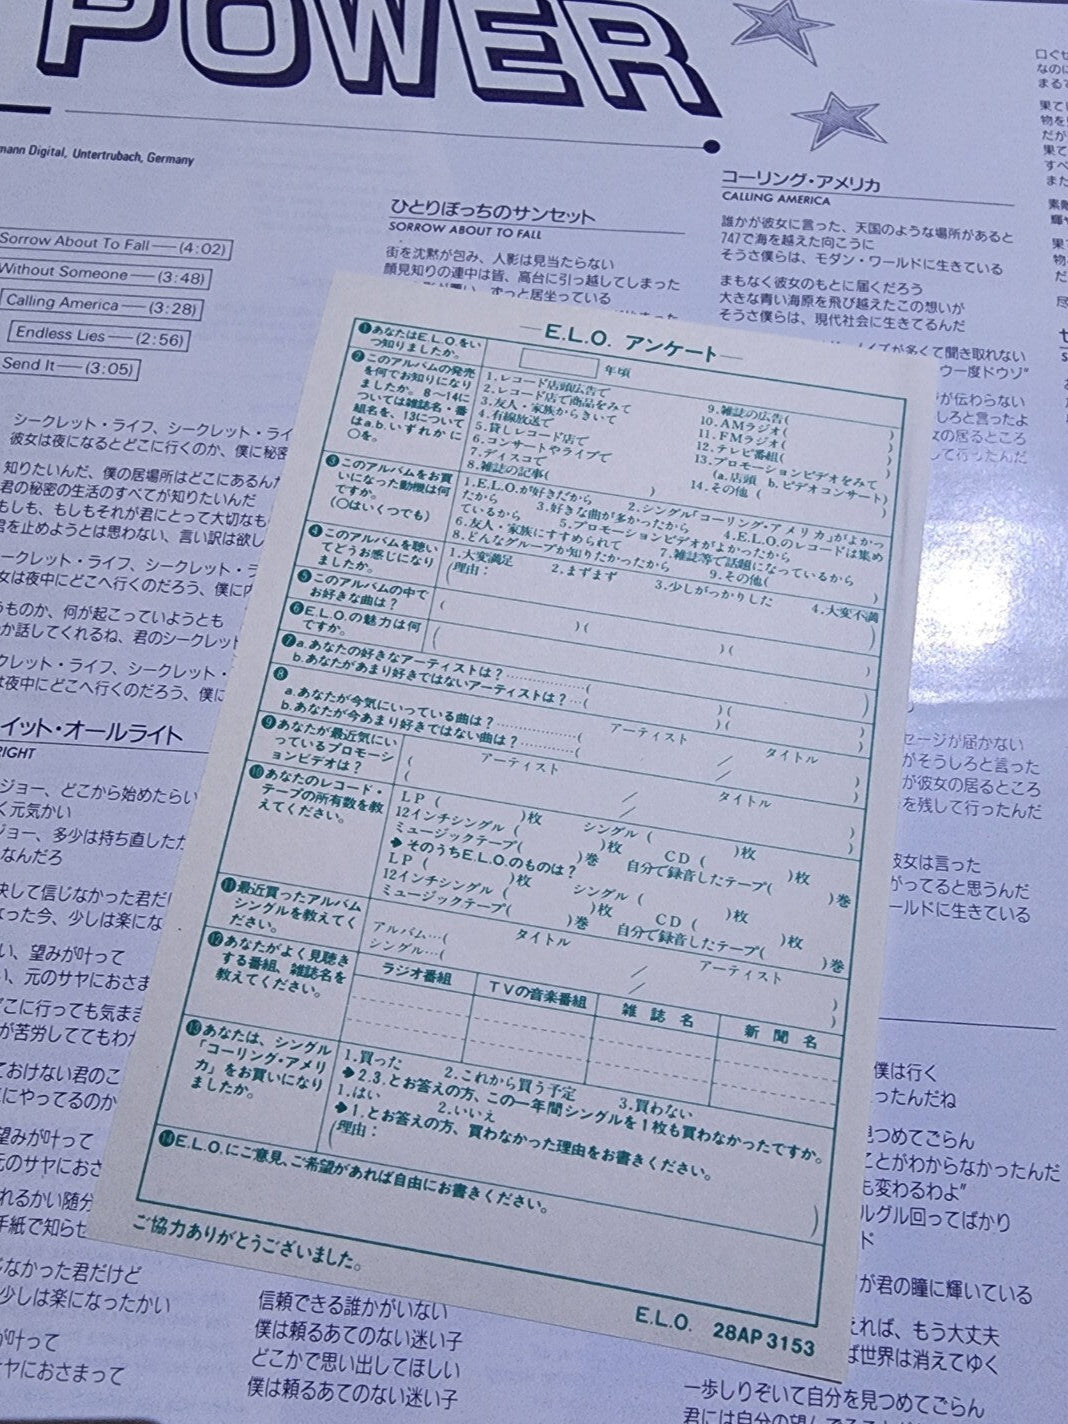 POWER
mann Digital, Untertrubach, Germany
Sorrow About To Fall — (4:02)
Without Someone — (3:48)
Calling America — (3:28)
Endless Lies — (2:56)
Send It — (3:05)
ひとりぼっちのサンセット
SORROW ABOUT TO FALL
街を沈黙が包み、人影は見当たらない
顔見知りの連中は皆、高台に引っ越してしまった
ずっと居坐っている
コーリング・アメリカ
CALLING AMERICA
誰かが彼女に言った、天国のような場所があると
747で海を越えた向こうに
そうさ僕らは、モダン・ワールドに生きている
まもなく彼女のもとに届くだろう
大きな青い海原を飛び越えたこの想いが
そうさ僕らは、現代社会に生きてるんだ
イズが多くて聞き取れない
ウ一度ドウゾ"
が伝わらない
しろと言ったよ
女の居るところ
して行ったんだ
シークレット・ライフ、シークレット・ライ
彼女は夜になるとどこに行くのか、僕に秘密
知りたいんだ、僕の居場所はどこにあるん
君の秘密の生活のすべてが知りたいんだ
もしも、もしもそれが君にとって大切なも
君を止めようとは思わない、言い訳は欲し
ークレット・ライフ、シークレット・ラ
女は夜中にどこへ行くのだろう、僕に
うものか、何が起こっていようとも
か話してくれるね、君のシークレット
クレット・ライフ、シークレット・
は夜中にどこへ行くのだろう、僕に
イット・オールライト
RIGHT
ジョー、どこから始めたらい
く元気かい
ジョー、多少は持ち直した
なんだろ
決して信じなかった君だ
なった今、少しは楽にな
い、望みが叶って
い、元のサヤにおさま
どこに行っても気まま
が苦労しててもわか
ておけない君のこ
にやってるのか
望みが叶って
元のサヤにおさ
れるかい随分
手紙で知らせ
じなかった君だけど
少しは楽になったかい
が叶って
ヤにおさまって
E.L.O. アンケート
❶あなたはE.L.O.をいつ知りましたか。
年頃
❷このアルバムの発売を何でお知りになりましたか。8〜14については雑誌名・番組名を、13についてはa.b.いずれかに○を。
1.レコード店頭広告で
2.レコード店で商品をみて
3.友人・家族からきいて
4.有線放送で
5.貸しレコード店で
6.コンサートやライブで
7.ディスコで
8.雑誌の記事( )
9.雑誌の広告( )
10.AMラジオ( )
11.FMラジオ( )
12.テレビ番組( )
13.プロモーションビデオをみて
(a.店頭 b.ビデオコンサート)
14.その他 ( )
❸このアルバムをお買いになった動機は何ですか。
(○はいくつでも)
1.E.L.O.が好きだから 2.シングル「コーリング・アメリカ」がよかったから 3.好きな曲が多かったから 4.E.L.O.のレコードは集めているから 5.プロモーションビデオがよかったから
6.友人・家族にすすめられて 7.雑誌等で話題になっているから
8.どんなグループか知りたかったから 9.その他( )
❹このアルバムを聴いてどうお感じになりましたか。
1.大変満足 2.まずまず 3.少しがっかりした 4.大変不満
(理由: )
❺このアルバムの中でお好きな曲は?
( )( )
❻E.L.O.の魅力は何ですか。
( )( )
❼a.あなたの好きなアーティストは?……( )( )
b.あなたがあまり好きではないアーティストは?…( )( )
❽ アーティスト タイトル
a.あなたが今気にいっている曲は?……( / )
b.あなたが今あまり好きではない曲は?……( / )
❾あなたが最近気にいっているプロモーションビデオは?
アーティスト タイトル
( / )
( / )
❿あなたのレコード・テープの所有数を教えてください。
LP ( )枚 シングル ( )枚
12インチシングル ( )枚 CD ( )枚
ミュージックテープ( )巻 自分で録音したテープ( )巻
◆そのうちE.L.O.のものは?
LP ( )枚 シングル ( )枚
12インチシングル ( )枚 CD ( )枚
ミュージックテープ( )巻 自分で録音したテープ( )巻
⓫最近買ったアルバムシングルを教えてください。
タイトル アーティスト
アルバム…( / )
シングル…( / )
⓬あなたがよく見聴きする番組、雑誌名を教えてください。
ラジオ番組 TVの音楽番組 雑誌名 新聞名
⓭あなたは、シングル「コーリング・アメリカ」をお買いになりましたか。
1.買った 2.これから買う予定 3.買わない
◆2.3.とお答えの方、この一年間シングルを1枚も買わなかったですか。
1.はい 2.いいえ
◆1.とお答えの方、買わなかった理由をお書きください。
(理由: )
⓮E.L.O.にご意見、ご希望があれば自由にお書きください。
ご協力ありがとうございました。
E.L.O. 28AP 3153
信頼できる誰かがいない
僕は頼るあてのない迷い子
どこかで思い出してほしい
僕は頼るあてのない迷い子
セージが届かない
がそうしろと言った
が彼女の居るところ
を残して行ったんだ
彼女は言った
がってると思うんだ
ールドに生きている
僕は行く
ったんだね
見つめてごらん
ことがわからなかったんだ
も変わるわよ"
ルグル回ってばかり
が君の瞳に輝いている
えれば、もう大丈夫
ば世界は消えてゆく
一歩しりぞいて自分を見つめてごらん